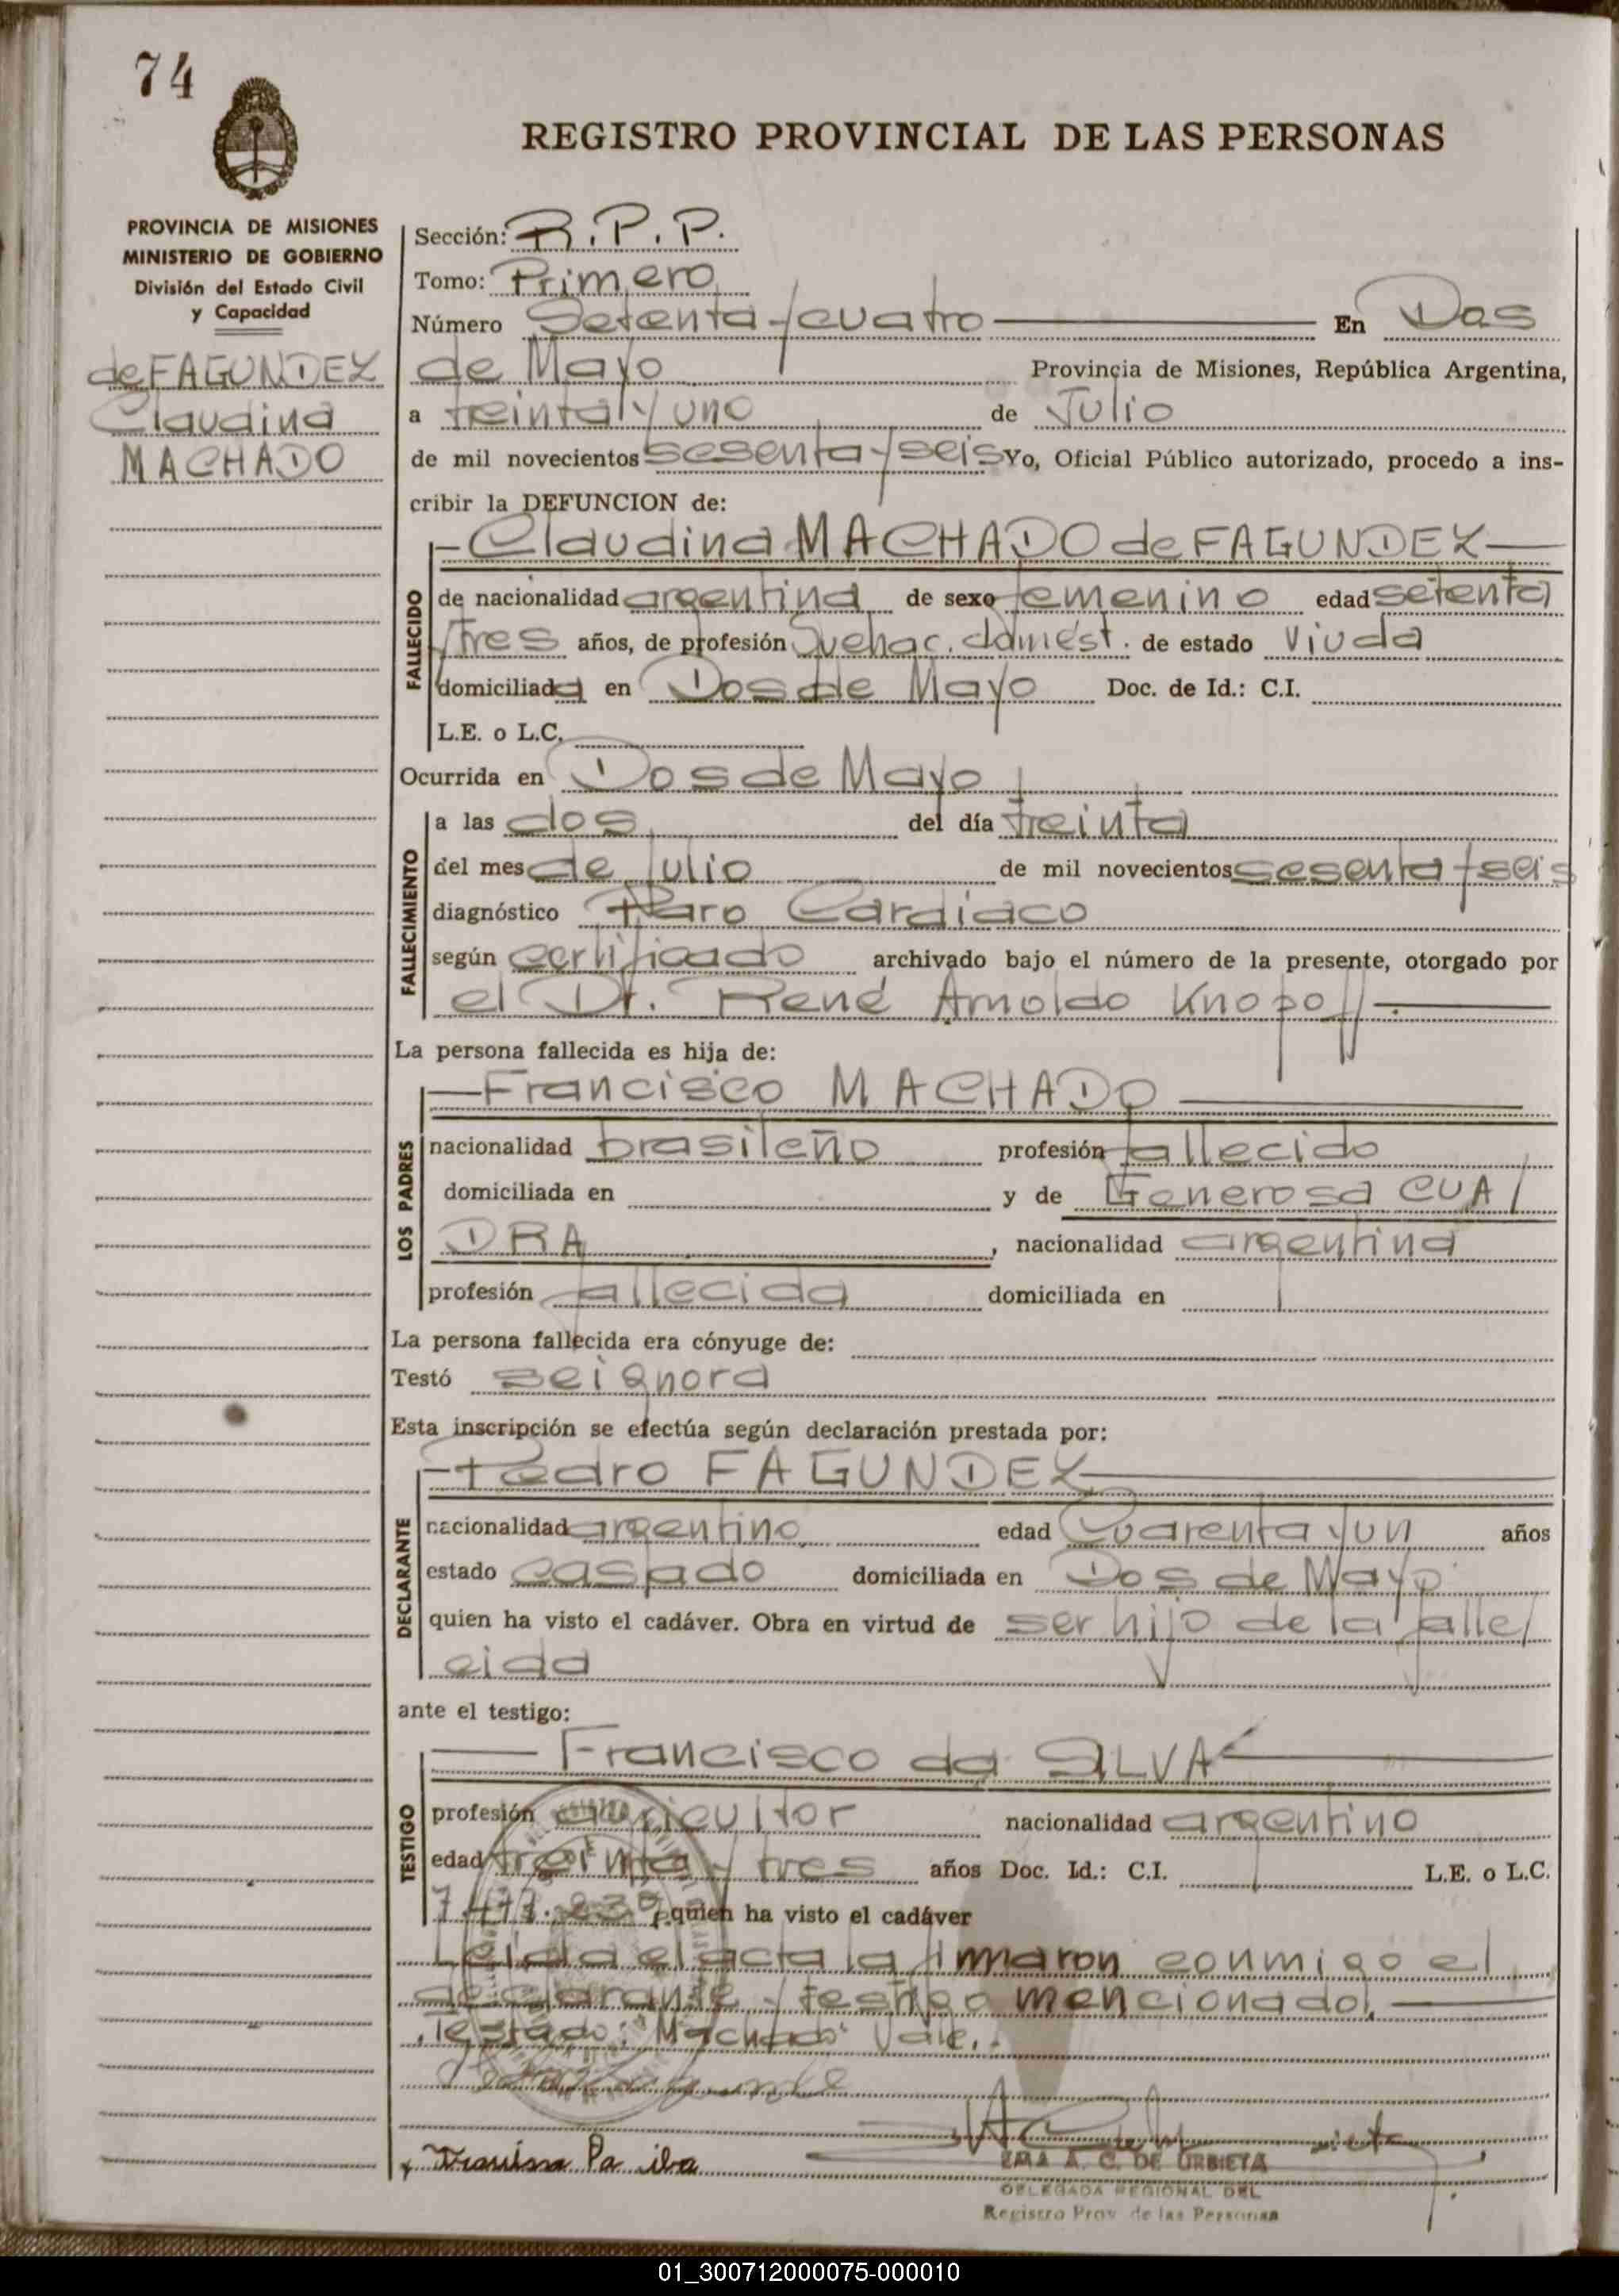 74
REGISTRO PROVINCIAL DE LAS PERSONAS
PROVINCIA DE MISIONES
MINISTERIO DE GOBIERNO
División del Estado Civil
y Capacidad
de FAGUNDEZ
Claudina
MACHADO
Sección: R.P.P.
Tomo: Primero
Número Setenta y cuatro En Dos
de Mayo Provincia de Misiones, República Argentina,
a treinta y uno de Julio
de mil novecientos sesenta y seis Yo, Oficial Público autorizado, procedo a ins-
cribir la DEFUNCION de:
FALLECIDO
Claudina MACHADO de FAGUNDEZ
de nacionalidad argentina de sexo femenino edad setenta
y tres años, de profesión Quehac. domést. de estado Viuda
domiciliada en Dos de Mayo Doc. de Id.: C.I.
L.E. o L.C.
Ocurrida en Dos de Mayo
FALLECIMIENTO
a las dos del día treinta
del mes de Julio de mil novecientos sesenta y seis
diagnóstico Paro Cardíaco
según certificado archivado bajo el número de la presente, otorgado por
el Dr. René Arnoldo Knopoff.
La persona fallecida es hija de:
LOS PADRES
Francisco MACHADO
nacionalidad brasileño profesión fallecido
domiciliada en y de Generosa CUA/
DRA, nacionalidad argentina
profesión fallecida domiciliada en
La persona fallecida era cónyuge de:
Testó se ignora
Esta inscripción se efectúa según declaración prestada por:
DECLARANTE
Pedro FAGUNDEZ
nacionalidad argentino edad Cuarenta y un años
estado casado domiciliada en Dos de Mayo
quien ha visto el cadáver. Obra en virtud de ser hijo de la falle/
cida
ante el testigo:
TESTIGO
Francisco da SILVA
profesión agricultor nacionalidad argentino
edad treinta y tres años Doc. Id.: C.I. L.E. o L.C.
quien ha visto el cadáver
Leída el acta la firmaron conmigo el
declarante y testigo mencionado.
Testado: "Machado" Vale.-
A. C. DE URBIETA
DELEGADA REGIONAL DEL
Registro Prov. de las Personas
01_300712000075-000010